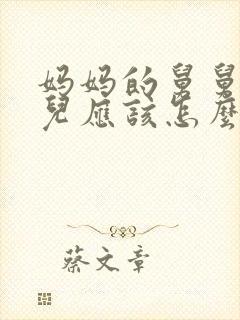 妈妈的舅舅
兒應該怎麼
蔡文章